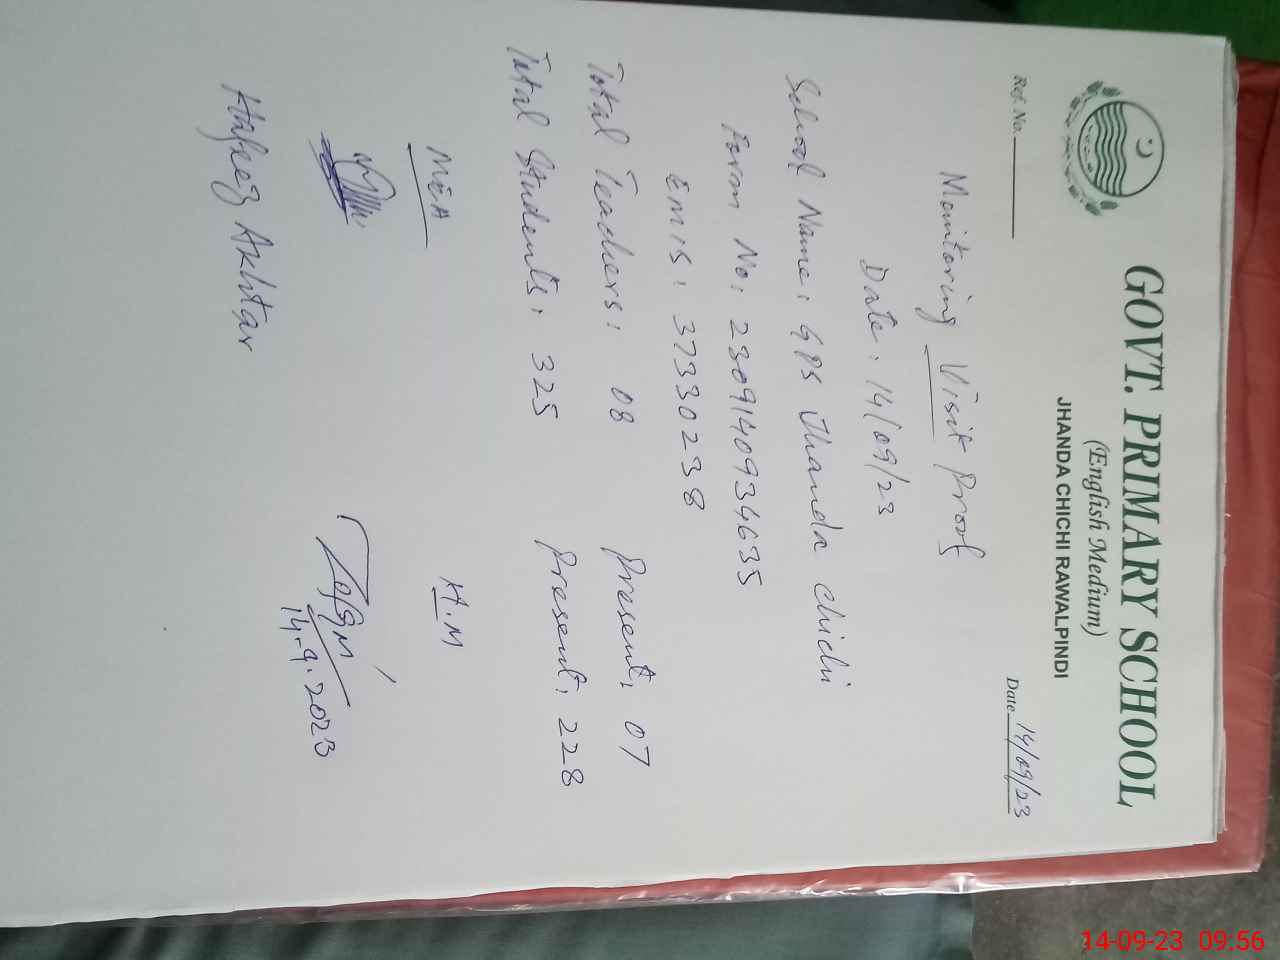 GOVT. PRIMARY SCHOOL
(English Medium)
JHANDA CHICHI RAWALPINDI
Ref. No. Date 14/09/23
Monitoring Visit Proof
Date: 14/09/23
School Name: GPS Jhanda Chichi
Form No: 2309140934635
EMIS: 37330238
Total Teachers: 08 Present: 07
Total Students: 325 Present: 228
MEA H.M
14-9-2023
Hafeez Akhtar
14-09-23 09:56